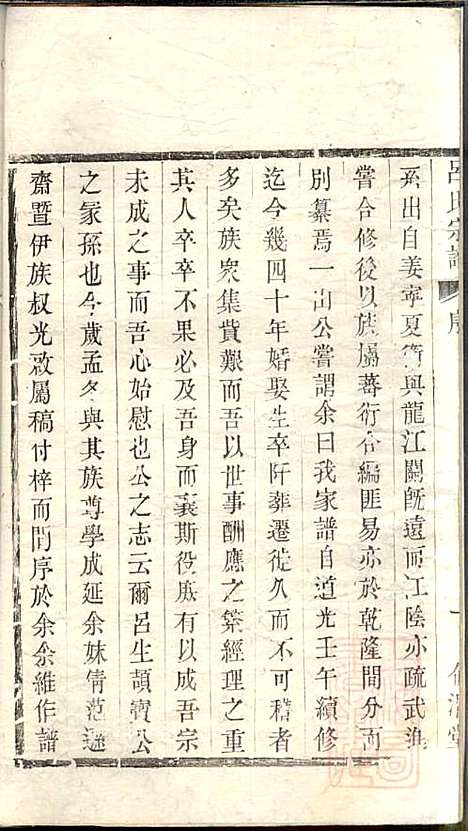 呂氏宗譜 序 一
系出自姜寧夏等與龍江關既遠而江陰亦疏武進
嘗合修後以族屬蕃衍合編匪易亦於乾隆間分而
別纂焉一山公嘗謂余曰我家譜自道光壬午續修
迄今幾四十年婚娶生卒阡葬遷徙久而不可稽者
多矣族衆集貲艱而吾以世事酬應之築經理之重
其人卒卒不果必及吾身而襄斯役庶有以成吾宗
未成之事而吾心始慰也公之志云爾呂生頡賓公
之家孫也今歲孟冬與其族尊學成延余妹倩范遜
齋暨伊族叔光啟屬稿付梓而問序於余余維作譜